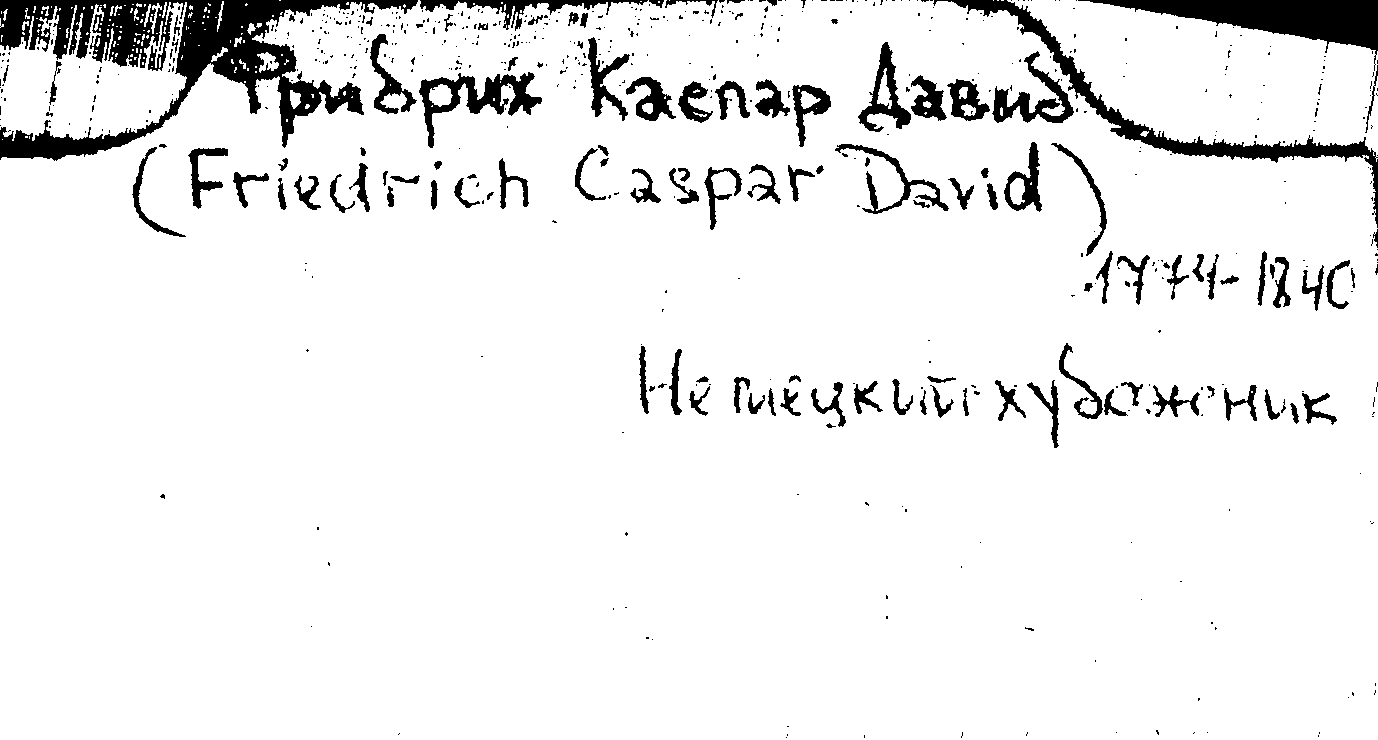 Фридрих Каспар Давид
(Friedrich Caspar David)
1774-1840
Немецкий художник